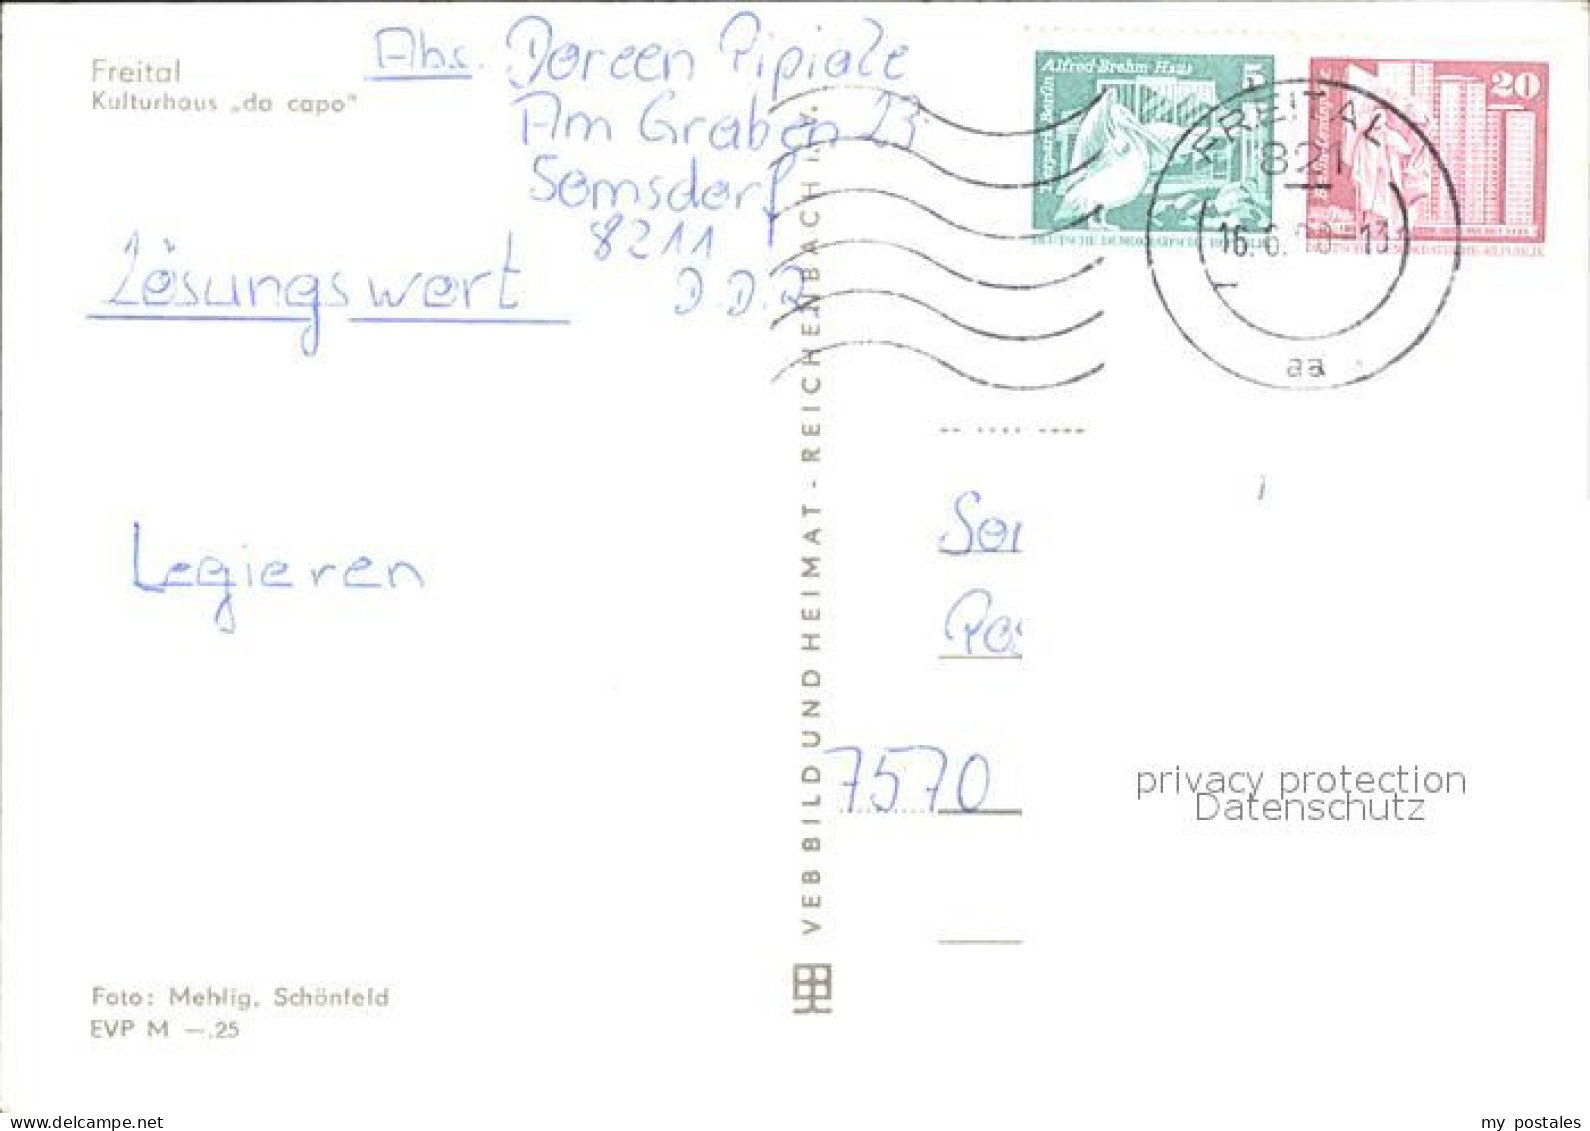 Freital
Kulturhaus „da capo"
Abs. Doreen
Am Graben 23
Somsdorf
8211
D.D.R
Lösungswort
Legieren
Foto: Mehlig, Schönfeld
EVP M —.25
VEB BILD UND HEIMAT - REICHENBACH i. V.
Alfred-Brehm-Haus
Tierpark Berlin
5
DEUTSCHE DEMOKRATISCHE REPUBLIK
20
DEUTSCHE DEMOKRATISCHE REPUBLIK
FREITAL
821
16.6.
13
aa
7570
privacy protection
Datenschutz
my postales
www.delcampe.net